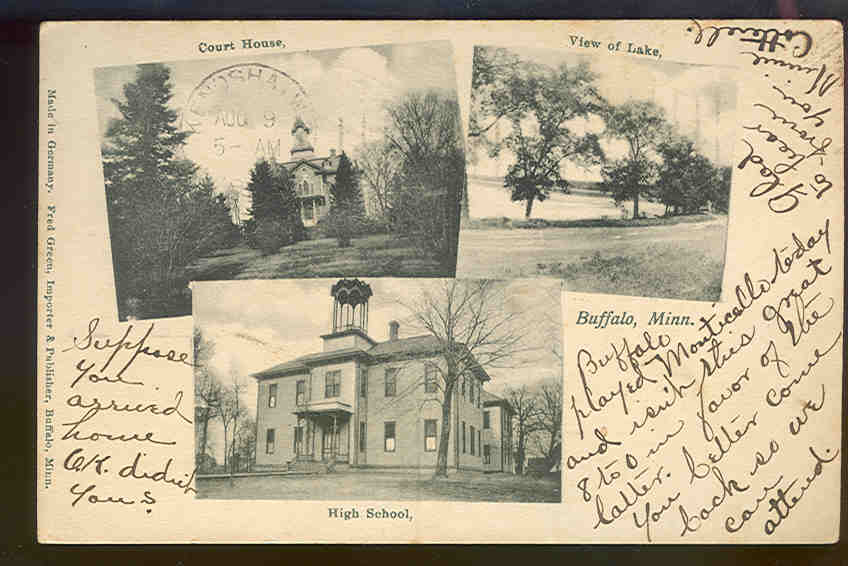 Court House,
View of Lake,
AUG 9
5- AM
Made in Germany. Fred Green, Importer & Publisher, Buffalo, Minn.
Buffalo, Minn.
High School,
Suppose
you
arrived
home
OK. didn't
you?
Buffalo
played Monticello today
and with this great
8 to 0 in favor of the
latter.
You better come
back so we
can
attend.
Glad
to hear
from
you
Minnie
Cotterell.